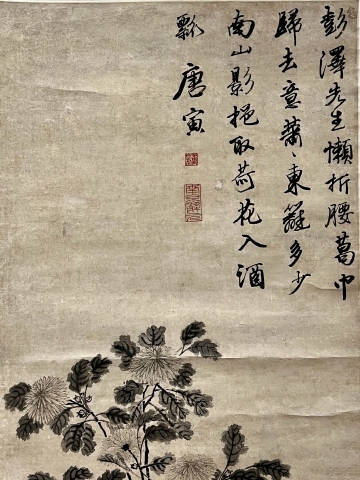 彭澤先生懶折腰葛巾
歸去意蕭〻東籬多少
南山影挹取荷花入酒
瓢
唐寅